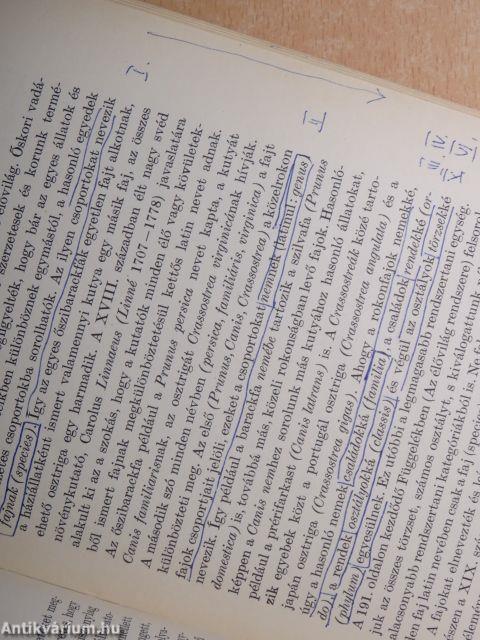 elővilág. Őskori vadá-
szerzetesek és korunk termé-
egfigyelték, hogy bár az egyes állatok és
ekben különböznek egymástól, a hasonló egyedek
etes csoportokba sorolhatók. Az ilyen csoportokat nevezik
fajnak (species). Így az egyes őszibarackfák egyetlen fajt alkotnak,
a háziállatként ismert valamennyi kutya egy másik faj, az összes
ehető osztriga egy harmadik. A XVIII. században élt nagy svéd
növénykutató, Carolus Linnaeus (Linné 1707—1778) javaslatára
alakult ki az a szokás, hogy a kutatók minden élő vagy kövületek-
ből ismert fajnak megkülönböztetésül kettős latin nevet adnak.
Az őszibarackfa például a Prunus persica nevet kapta, a kutyát
Canis familiarisnak, az osztrigát Crassostrea virginicának hívják.
A második szó minden névben (persica, familiáris, virginica) a fajt
különbözteti meg. Az első (Prunus, Canis, Crassostrea) a közelrokon
fajok csoportjait jelöli, ezeket a csoportokat nemnek (latinul: genus)
nevezik. Így például a barackfa nemébe tartozik a szilvafa (Prunus
domestica) is, továbbá más, közeli rokonságban levő fajok Hasonló-
képpen a Canis nemhez sorolunk más kutyához hasonló állatokat,
például a prérifarkast (Canis latrans) is. A Crassostreák közé tarto-
zik egyebek közt a portugál osztriga (Crassostrea angulata) és a
japán osztriga (Crassostrea gigas). Ahogy a rokonfajok nemekké,
úgy a hasonló nemek családokká (familia), a családok rendekké (or-
do), a rendek osztályokká (classis), és végül az osztályok törzsekké
(phylum) egyesülnek. Ez utóbbi a legmagasabb rendszertani egység.
A 191. oldalon kezdődő Függelékben (Az élővilág rendszere) felsorol
tuk az összes törzset, számos osztályt, s kiválogattunk
alacsonyabb rendszertani kategóriákból is. Ne
len faj latin nevében csak a faj (spec
A fajokat elnevezték és
zen a XIX. szá
I.
II
III. IV.
VI.
X
Antikvárium.hu